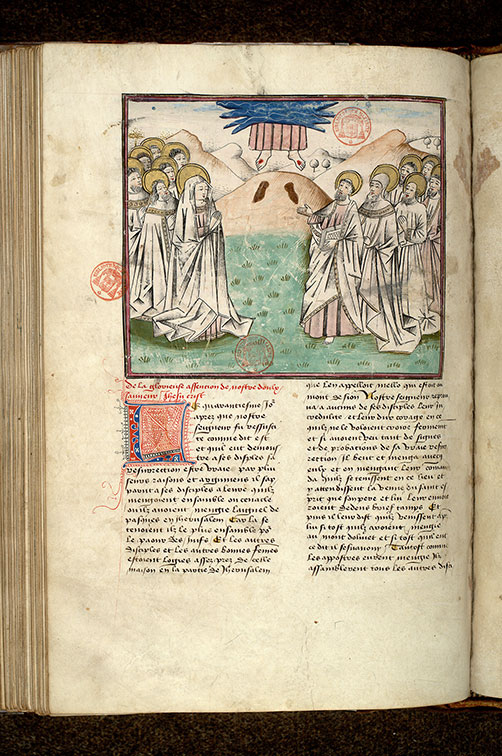 De la glorieuse assention de nostre doulz
sauveur Jhesu crist
quarantiesme Jor
apres que nostre
seigneur fu ressusci
te comme dit est
et que eut demon
stre a ses disciples sa
resurrection estre vraie par plu
seurs raisons et argumens il sap
parut a ses disciples a leure quilz
mengoient ensamble ou cenacle
ou ilz avoient mengie laignel de
pasques en Jherusalem Car la se
tenoient ilz le plus ensamble po
le paour des Juifs Et les autres
disciples et les autres bonnes femes
estoient logies assez pres de celle
maison en la partie de Jherusalem
que len appelloit mello qui estoit ou
mont de sion Nostre seigneur repro
va a aucuns de ses disciples leur in
credulite et leur dure corage en ce
quilz ne le vouloient croire fermemt
et si avoient veu tant de signes
et de probations de sa vraie resur
rection Il but et menga avec
eulx et en mengant leur comman
da quilz se tenissent en ce lieu et
y attendissent la venue du saint es
prit que son pere et lui leur envoie
roient dedens brief tamps Et
puis il leur dist quilz venissent a
lui si tost quilz avroient mengie
au mont dolivet et si tost quil eut
ce dit il sesvanouy Tantost comme
les appostres eurent mengie ilz
assamblerent tous les autres disci